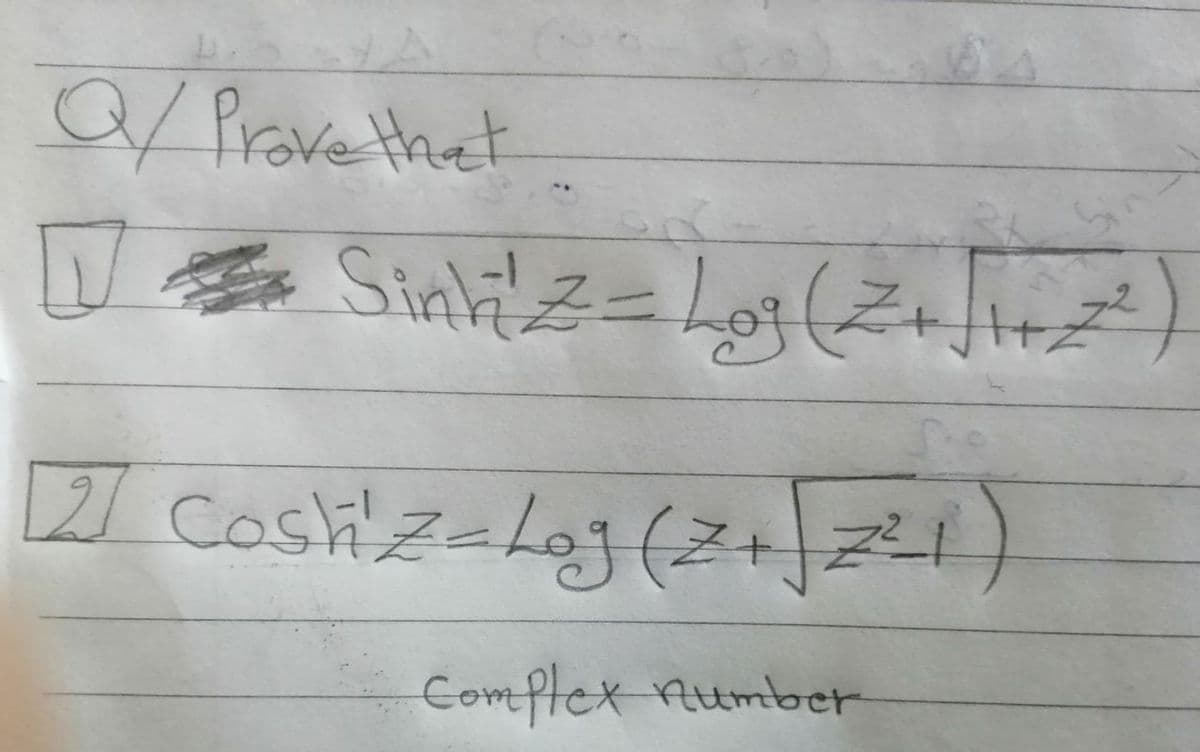 Q/ Prove that
1 Sinh⁻¹z = Log(z+√1+z²)
2 Cosh⁻¹z = Log(z+√z²-1)
Complex number